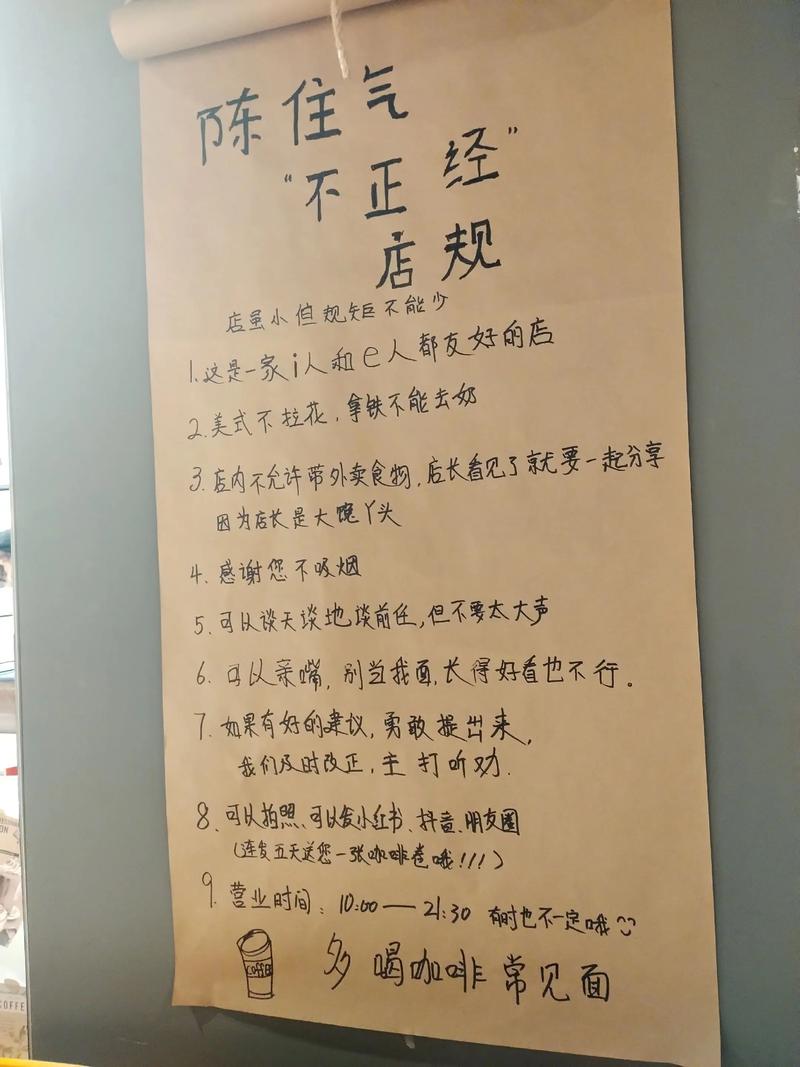 陈住气
“不正经”
店规
店虽小但规矩不能少
1.这是一家i人和e人都友好的店
2.美式不拉花，拿铁不能去奶
3.店内不允许带外卖食物，店长看见了就要一起分享
因为店长是大馋丫头
4.感谢您不吸烟
5.可以谈天谈地谈前任，但不要太大声
6.可以亲嘴，别当我面，长得好看也不行。
7.如果有好的建议，勇敢提出来，
我们及时改正，主打听劝.
8.可以拍照、可以发小红书、抖音、朋友圈
(连发五天送您一张咖啡卷哦!!!)
9.营业时间：10:00——21:30 有时也不一定哦
COFFEE
多喝咖啡常见面
COFFE